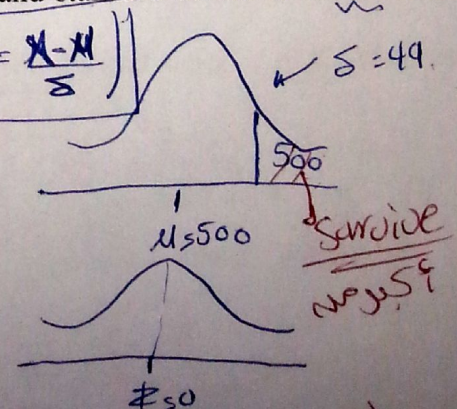 = X-M/δ)
δ = 44.
500
Ms500
Survive
Zs0